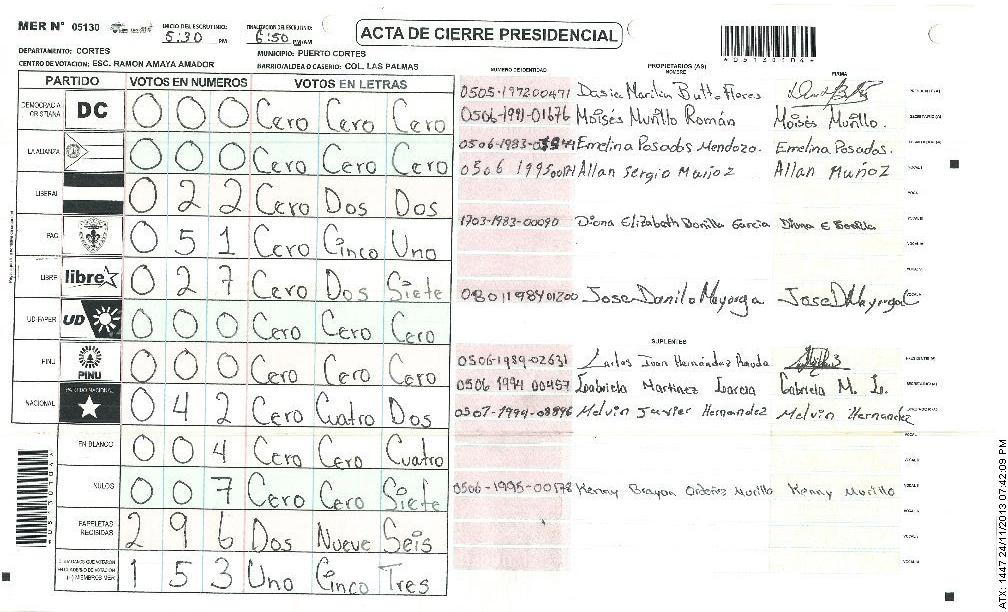 MER N° 05130
INICIO DEL ESCRUTINIO: 5:30 PM
FINALIZACION DEL ESCRUTINIO: 6:50 PM/AM
ACTA DE CIERRE PRESIDENCIAL
DEPARTAMENTO: CORTES
MUNICIPIO: PUERTO CORTES
CENTRO DE VOTACION: ESC. RAMON AMAYA AMADOR
BARRIO/ALDEA O CASERIO: COL. LAS PALMAS
PARTIDO VOTOS EN NUMEROS VOTOS EN LETRAS
DEMOCRACIA CRISTIANA DC 0 0 0 Cero Cero Cero
LA ALIANZA 0 0 0 Cero Cero Cero
LIBERAL 0 2 2 Cero Dos Dos
PAC 0 5 1 Cero Cinco Uno
LIBRE libre 0 2 7 Cero Dos Siete
UD/FAPER UD 0 0 0 Cero Cero Cero
PINU PINU 0 0 0 Cero Cero Cero
NACIONAL PARTIDO NACIONAL 0 4 2 Cero Cuatro Dos
EN BLANCO 0 0 4 Cero Cero Cuatro
NULOS 0 0 7 Cero Cero Siete
PAPELETAS RECIBIDAS 2 9 6 Dos Nueve Seis
CIUDADANOS QUE VOTARON EN CUADERNO DE VOTACION (+) MIEMBROS MER 1 5 3 Uno Cinco Tres
NUMERO DE IDENTIDAD
PROPIETARIOS (AS)
NOMBRE FIRMA
0505-197200471
0506-1991-01676 Moisés Murillo Román Moisés Murillo.
Emelina Posadas Mendoza. Emelina Posadas.
Allan Sergio Muñoz Allan Muñoz
1703-1983-00090 Diana Elizabeth Bonilla Garcia Diana E Bonilla
0801198401200 Jose Danilo Mayorga Jose D Mayorga
SUPLENTES
0506-1989-02631 Carlos Ivan Hernández
0506 1994 00457 Gabriela Martinez Garcia Gabriela M. G.
Melvin Javier Hernandez Melvin Hernandez
0506-1995-00178 Kenny Brayan Ordoñez Murillo Kenny Murillo
ATX: 1447 24/11/2013 07:42:09 PM